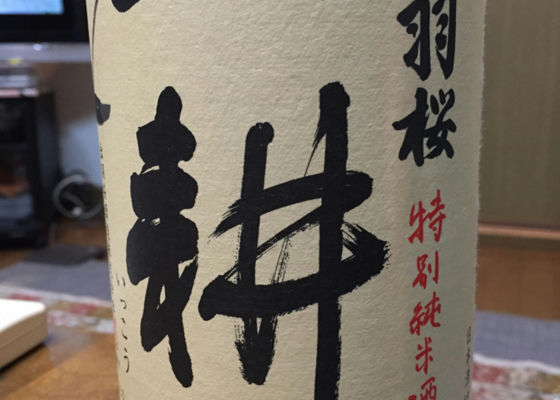 羽桜
特別純米酒
耕
いっこう